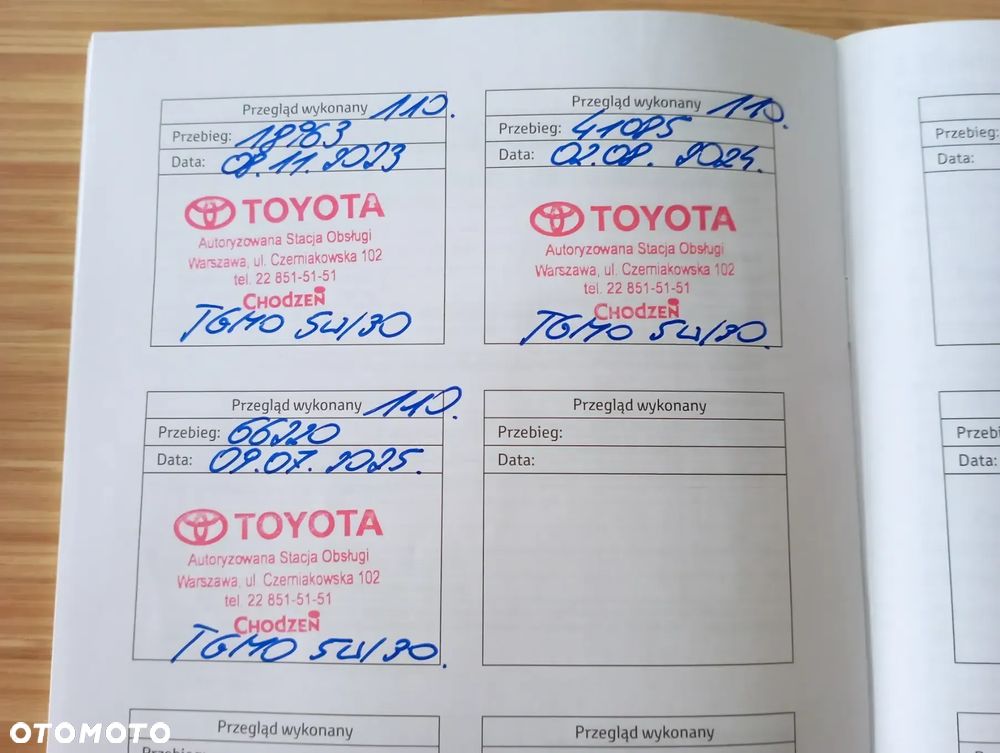 Przegląd wykonany 110.
Przebieg: 18963
Data: 08.11.2023
TOYOTA
Autoryzowana Stacja Obsługi
Warszawa, ul. Czerniakowska 102
tel. 22 851-51-51
CHODZEŃ
TGMO 5W/30
Przegląd wykonany 110.
Przebieg: 41085
Data: 02.08.2024.
TOYOTA
Autoryzowana Stacja Obsługi
Warszawa, ul. Czerniakowska 102
tel. 22 851-51-51
CHODZEŃ
TGMO 5W/30.
Przegląd wykonany 110.
Przebieg: 66220
Data: 09.07.2025.
TOYOTA
Autoryzowana Stacja Obsługi
Warszawa, ul. Czerniakowska 102
tel. 22 851-51-51
CHODZEŃ
TGMO 5W/30.
Przegląd wykonany
Przebieg:
Data:
Przegląd wykonany
Przegląd wykonany
Przebieg:
Data:
Data:
OTOMOTO